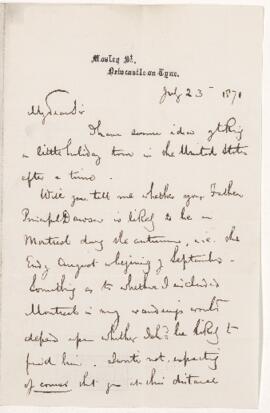 Mosley St.
Newcastle on Tyne.
July 23 1871
My dear Sir
I have some idea of taking
a little holiday tour in the United States
after a time.
Will you tell me whether your Father
Principal Dawson is likely to be in
Montreal during the autumn, i.e. the
End August beginning of September.
Something as to whether I included
Montreal in my wanderings would
depend upon whether I sh.d be likely to
find him. I write not, expecting
of course that you at this distance